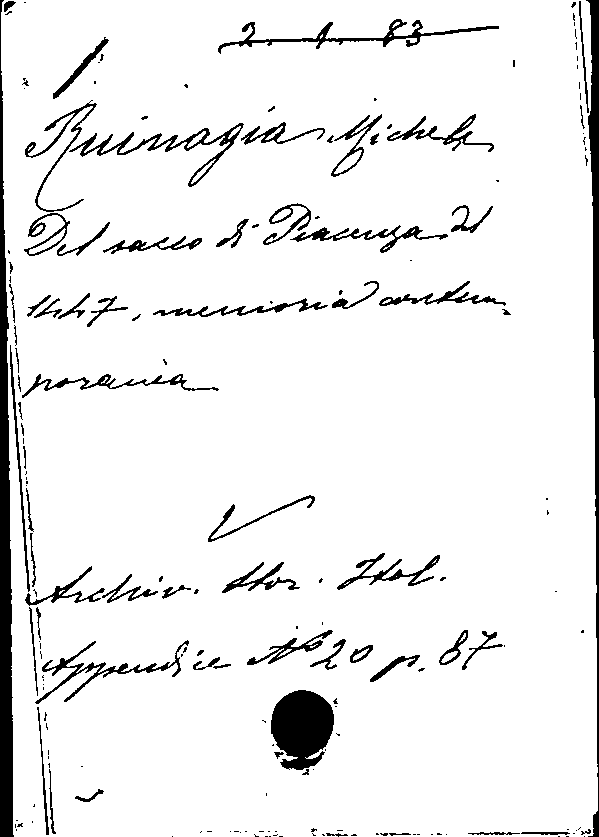 2. 1. 83
Ruinagia Michele
Del sacco di Piacenza del
1447, memoria contem-
poranea
Archiv. Stor. Ital.
Appendice No 20 p. 87